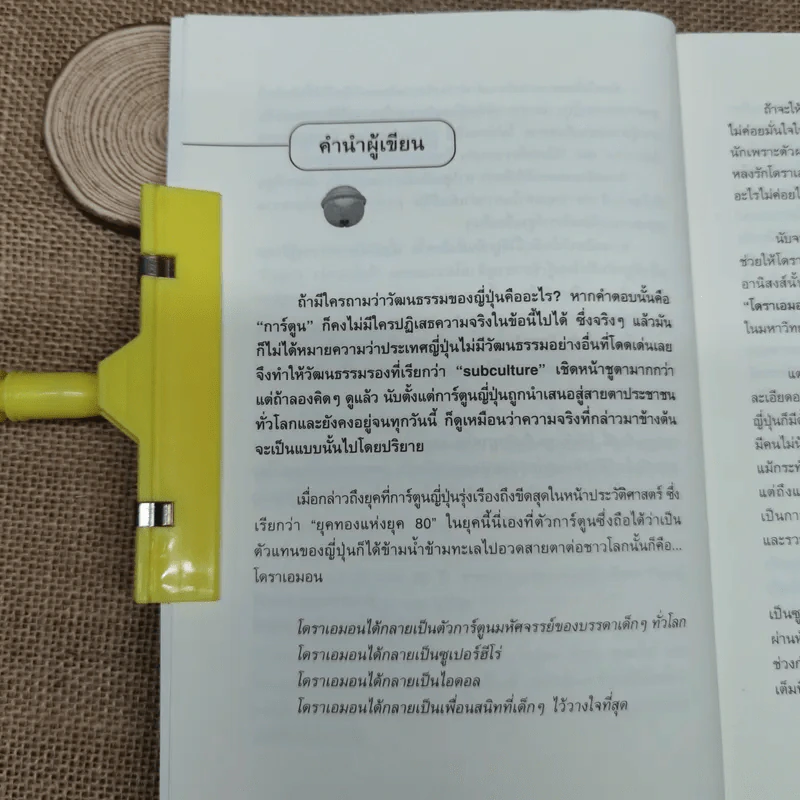 คำนำผู้เขียน
ถ้ามีใครถามว่าวัฒนธรรมของญี่ปุ่นคืออะไร? หากคำตอบนั้นคือ
“การ์ตูน” ก็คงไม่มีใครปฏิเสธความจริงในข้อนี้ไปได้ ซึ่งจริงๆ แล้วมัน
ก็ไม่ได้หมายความว่าประเทศญี่ปุ่นไม่มีวัฒนธรรมอย่างอื่นที่โดดเด่นเลย
จึงทำให้วัฒนธรรมรองที่เรียกว่า “subculture” เชิดหน้าชูตามากกว่า
แต่ถ้าลองคิดๆ ดูแล้ว นับตั้งแต่การ์ตูนญี่ปุ่นถูกนำเสนอสู่สายตาประชาชน
ทั่วโลกและยังคงอยู่จนทุกวันนี้ ก็ดูเหมือนว่าความจริงที่กล่าวมาข้างต้น
จะเป็นแบบนั้นไปโดยปริยาย
เมื่อกล่าวถึงยุคที่การ์ตูนญี่ปุ่นรุ่งเรืองถึงขีดสุดในหน้าประวัติศาสตร์ ซึ่ง
เรียกว่า “ยุคทองแห่งยุค 80” ในยุคนี้นี่เองที่ตัวการ์ตูนซึ่งถือได้ว่าเป็น
ตัวแทนของญี่ปุ่นก็ได้ข้ามน้ำข้ามทะเลไปอวดสายตาต่อชาวโลกนั้นก็คือ...
โดราเอมอน
โดราเอมอนได้กลายเป็นตัวการ์ตูนมหัศจรรย์ของบรรดาเด็กๆ ทั่วโลก
โดราเอมอนได้กลายเป็นซูเปอร์ฮีโร่
โดราเอมอนได้กลายเป็นไอดอล
โดราเอมอนได้กลายเป็นเพื่อนสนิทที่เด็กๆ ไว้วางใจที่สุด
ถ้าจะให้
ไม่ค่อยมั่นใจใ
นักเพราะตัว
หลงรักโดราเ
อะไรไม่ค่อย
นับจ
ช่วยให้โดรา
อานิสงส์นั้
“โดราเอมอ
ในมหาวิทย
แต
ละเอียดอ
ญี่ปุ่นก็มี
มีคนไม่น้
แม้กระทั่
แต่ถึงแ
เป็นกา
และรว
เป็นซู
ผ่านห
ช่วงก
เต็มที